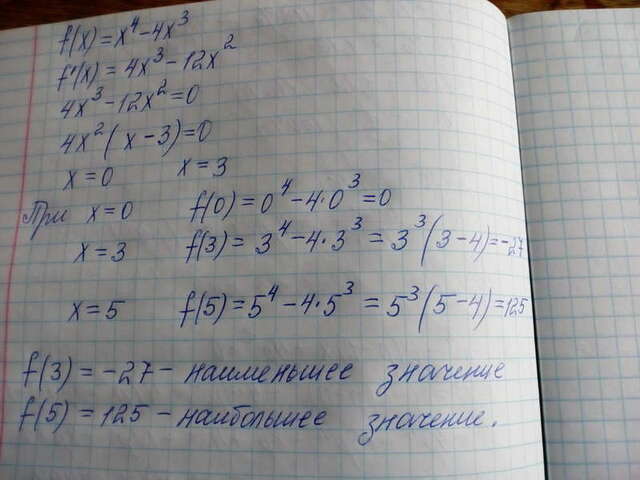 f(x) = x⁴ - 4x³
f'(x) = 4x³ - 12x²
4x³ - 12x² = 0
4x²(x - 3) = 0
x = 0 x = 3
При x = 0 f(0) = 0⁴ - 4·0³ = 0
x = 3 f(3) = 3⁴ - 4·3³ = 3³(3 - 4) = -27
x = 5 f(5) = 5⁴ - 4·5³ = 5³(5 - 4) = 125
f(3) = -27 - наименьшее значение
f(5) = 125 - наибольшее значение.